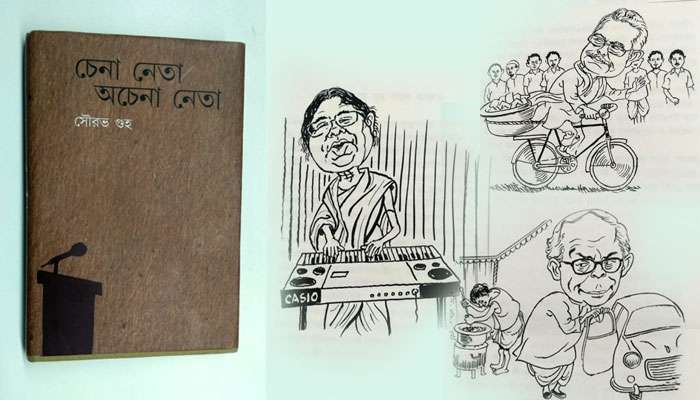 চেনা নেতা
অচেনা নেতা
সৌরভ গুহ
CASIO